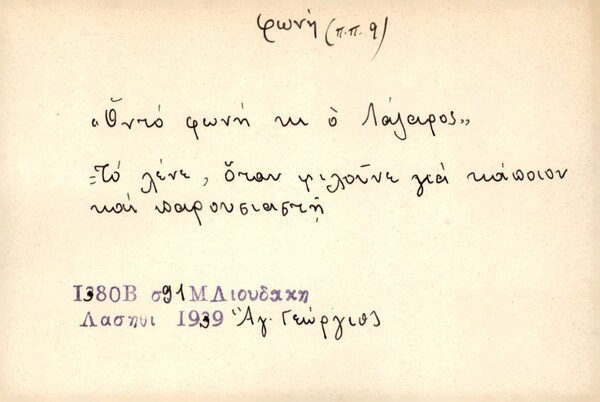 φωνή (π.π. 9)
«Ὄντό φωνή κι ὁ Λάζαρος»
=Τό λένε, ὅταν μιλοῦνε γιά κάποιον
καί παρουσιαστῇ
1380Β σ91 ΜΛιουδακη
Λασηθι 1939 Ἅγ. Γεώργιος